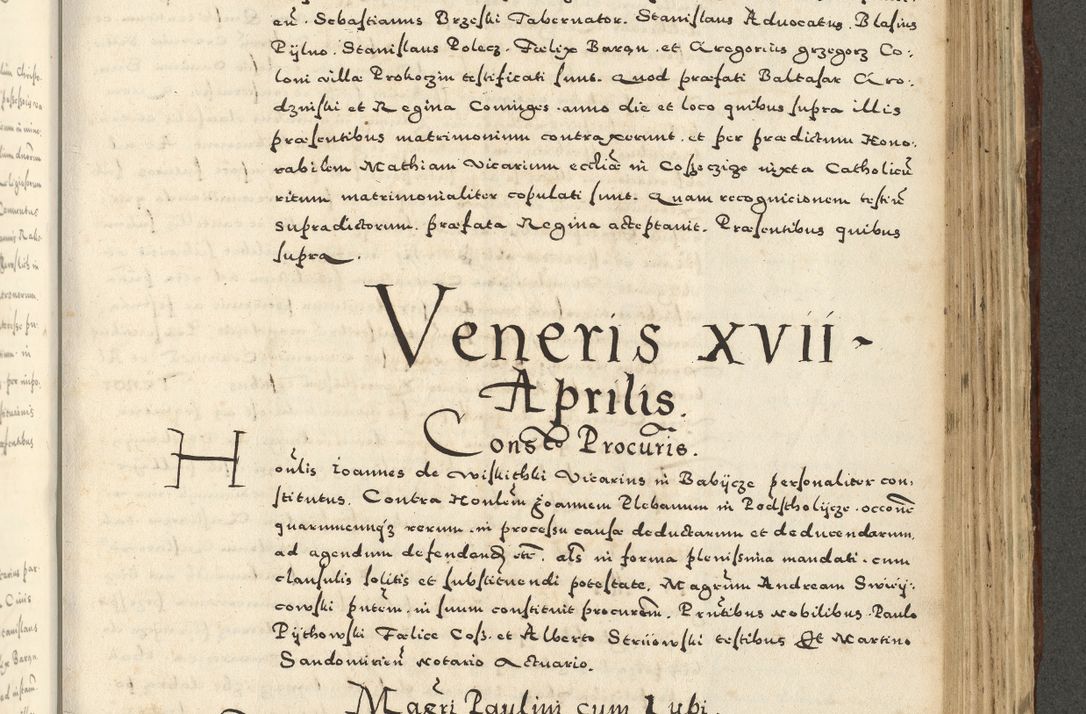 eũ. Sebastianus Brzeski Tabernator. Stanislaus Advocatus. Blasius
Pijlno. Stanislaus Polecz. Fœlix Baran. et Gregorius grzegorz Co:
loni villæ Prokoczin testificati sunt. Quod præfati Baltasar Gro:
dzinski et Regina Cominges anno die et loco quibus supra illis
præsentibus matrimonium contraxerunt. et per prædictum Hono:
rabilem Mathiam Vicarium eccliæ in Coßoczize iuxta Catholicũ
ritum matrimonialiter copulati sunt. Quam recognicionem testiũ
supradictorum. præfata Regina acceptavit. Præsentibus quibus
supra.
Veneris XVII
Aprilis.
Consto Procuris.
Honlis Ioannes de Wiskithki Vicarius in Babijcze personaliter con,
stitutus. Contra Honlem Joannem Plebanum in Podstholijcze. occone
quarumcunqz rerum in processu causæ deductarum et deducendarum,
ad agendum defendend etc. als in forma plenissima mandati. cum
clausulis solitis et substituendi potestate. Magrum Andream Swiij:
cowski pntem. in suum constituit procurem. Pntibus nobilibus Paulo
Pijthowski Fœlice Coß. et Alberto Strüowski testibus Et Martino
Sandomirien Notario Actuario.
Magri Paulini cum Lupi.